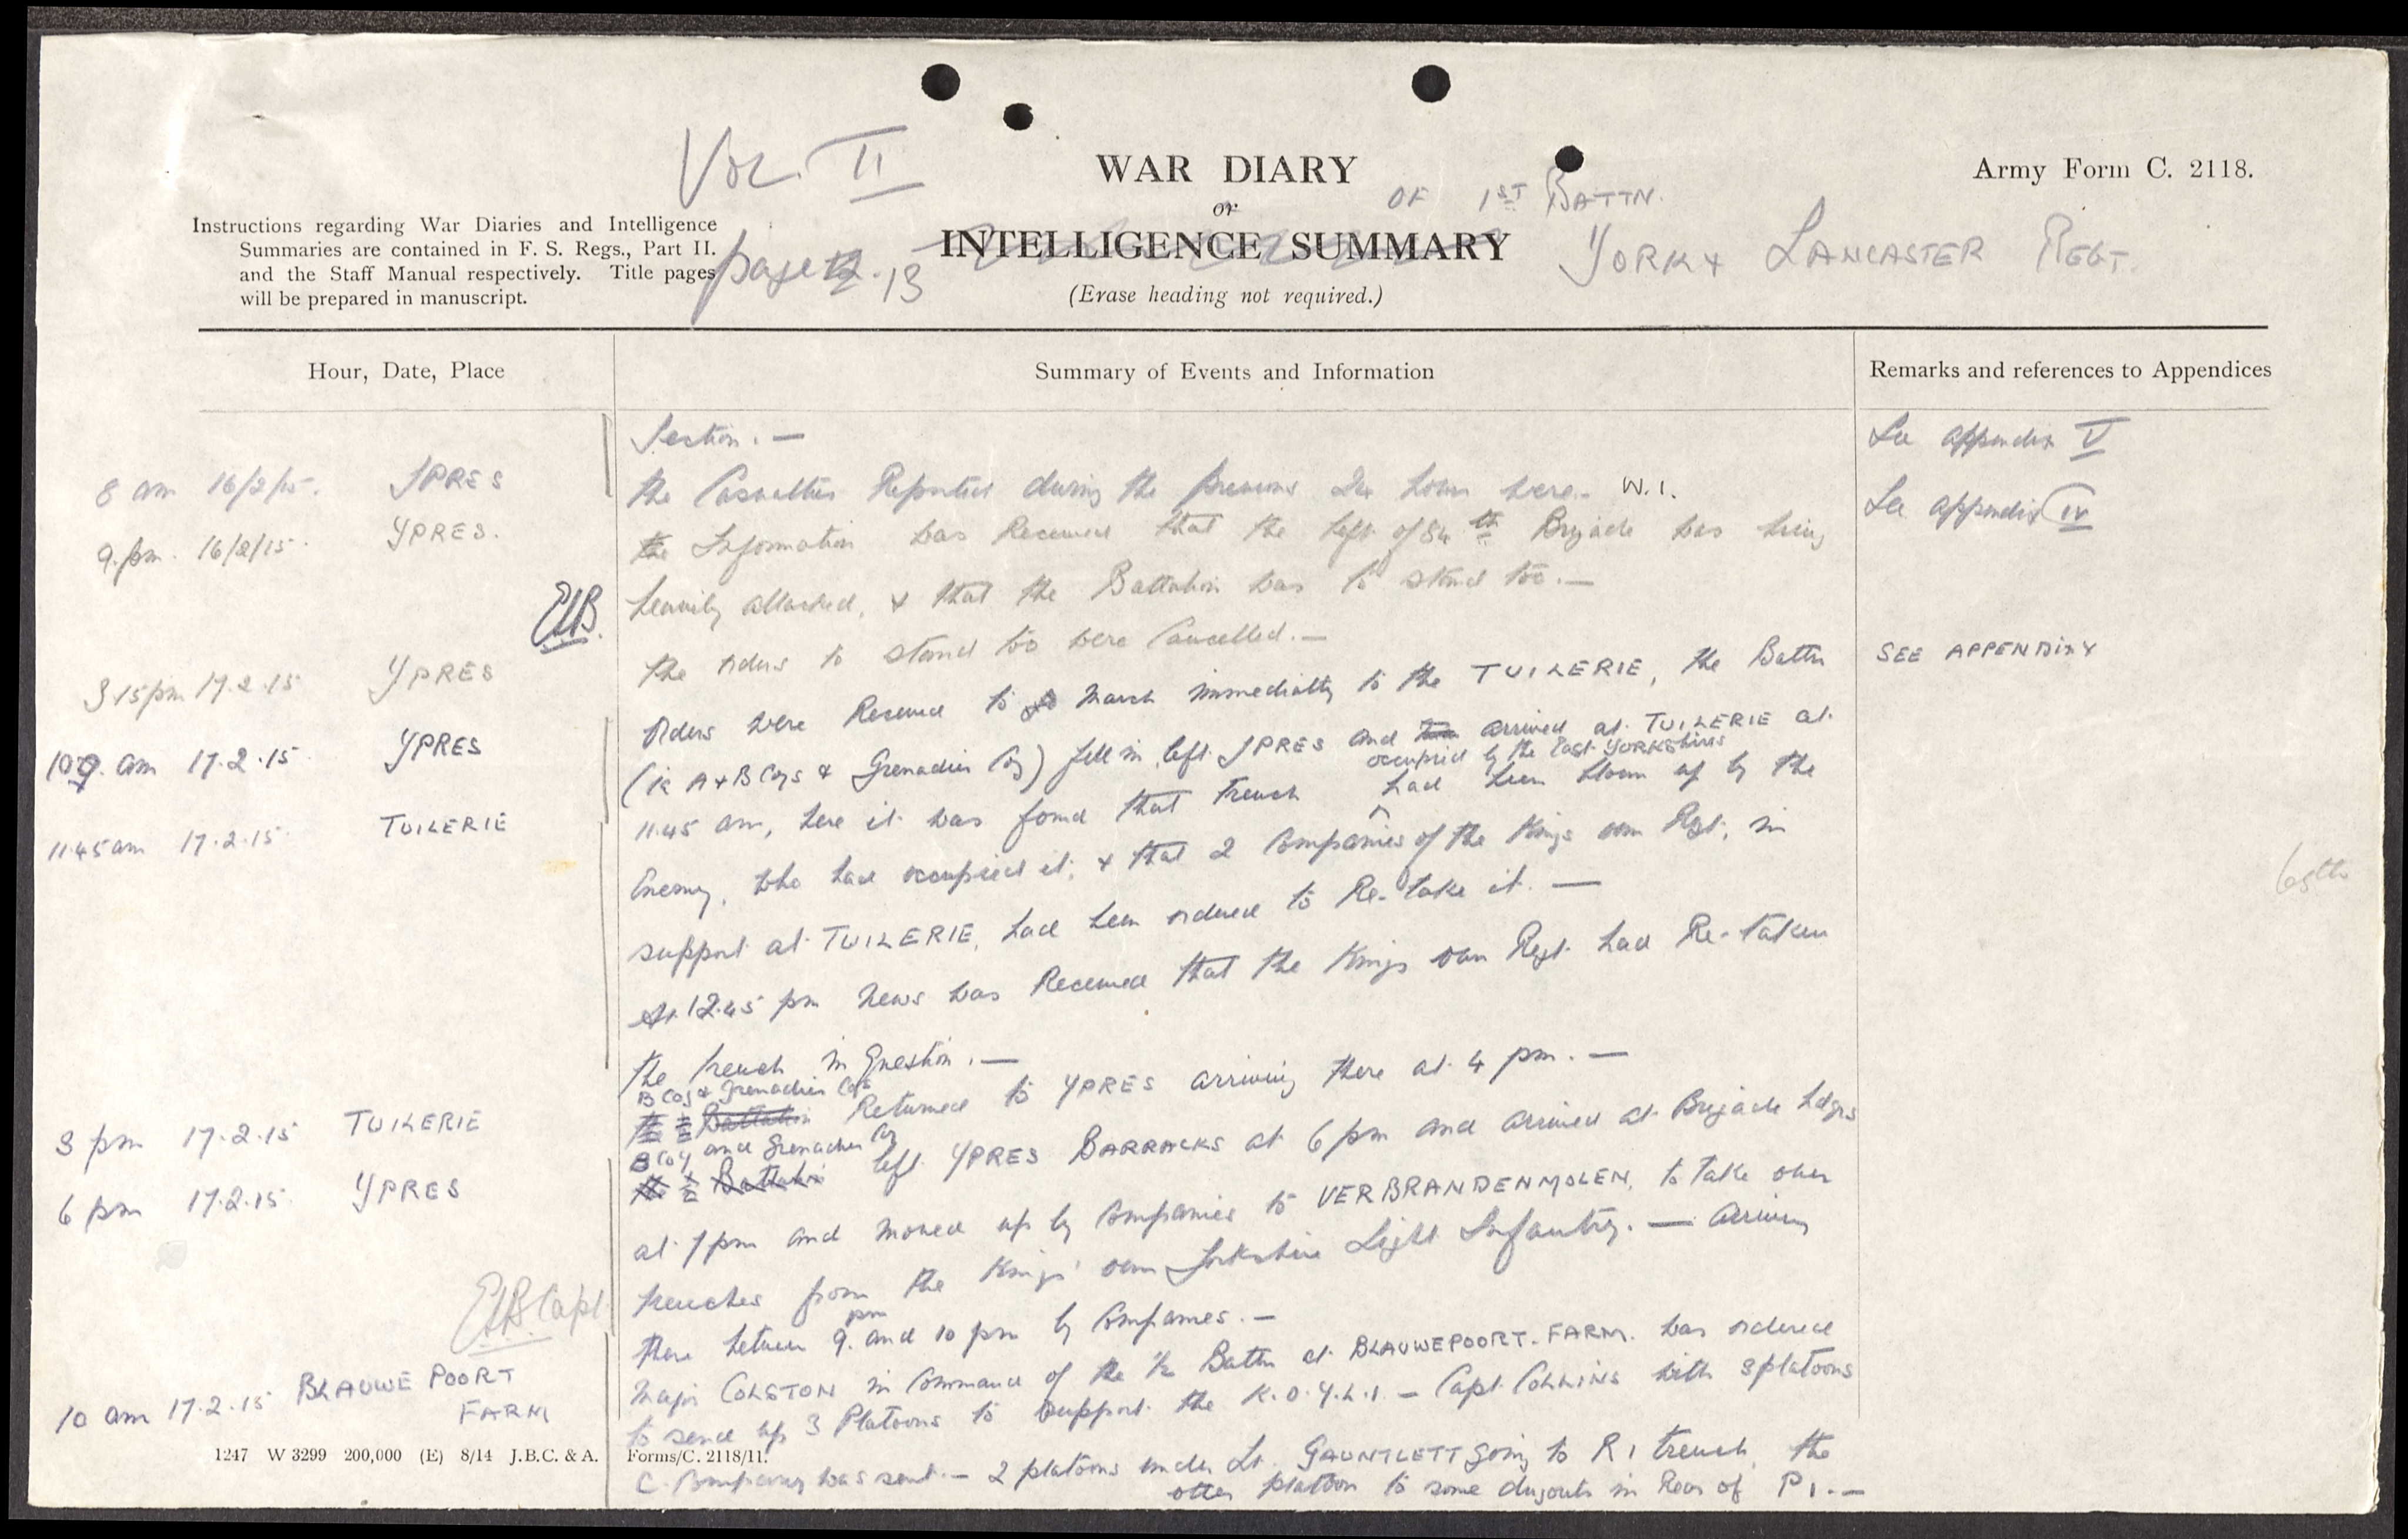 Vol. II
WAR DIARY
or
INTELLIGENCE SUMMARY
(Erase heading not required.)
OF 1ST BATTN.
YORK & LANCASTER REGT.
Army Form C. 2118.
Instructions regarding War Diaries and Intelligence
Summaries are contained in F. S. Regs., Part II.
and the Staff Manual respectively. Title pages
will be prepared in manuscript.
page 13
Hour, Date, Place
Summary of Events and Information
Remarks and references to Appendices
Section. —
See appendix V
8 am 16/2/15. YPRES
the Casualties Reported during the previous 24 hours were. W.1.
See appendix IV
9. pm. 16/2/15. YPRES.
the Information was Received that the left of 84th Brigade was being
heavily attacked, & that the Battalion was to stand too. —
EUB.
3.15 pm 17.2.15 YPRES
the orders to stand too were Cancelled. —
SEE APPENDIX
109. am 17.2.15. YPRES
Orders were Received to March immediatly to the TUILERIE, the Battn
(ie A & B Coys & Grenadier Coy) fell in, left YPRES and arrived at TUILERIE at
11.45 am 17.2.15. TUILERIE
11.45 am, here it was found that trench occupied by the East YORKshires had been blown up by the
Enemy, who had occupied it, & that 2 Companies of the Kings own Regt, in
support at TUILERIE, had been ordered to Re-take it. —
65th
At 12.45 pm News was Received that the Kings own Regt had Re-taken
the trench in Question. —
3 pm 17.2.15 TUILERIE
B Coy & Grenadier Coy the Battalion Returned to YPRES arriving there at 4 pm. —
6 pm 17.2.15. YPRES
B Coy and Grenadier Coy the Battalion left YPRES BARRACKS at 6 pm and arrived at Brigade Hdqrs
at 7 pm and moved up by Companies to VERBRANDENMOLEN, to take over
trenches from the Kings' own Yorkshire Light Infantry. — Arriving
EUB Capt
there between 9. pm and 10 pm by Companies. —
10 am 17.2.15 BLAUWE POORT FARM
Major COLSTON in Command of the ½ Battn at BLAUWEPOORT. FARM. was ordered
to send up 3 Platoons to Support the K.O.Y.L.I. — Capt. COLLINS with 3 platoons
C. Company was sent. — 2 platoons under Lt. GAUNTLETT going to R1 trench, the
other platoon to some dugouts in Rear of P1. —
1247 W 3299 200,000 (E) 8/14 J.B.C. & A. Forms/C. 2118/11.